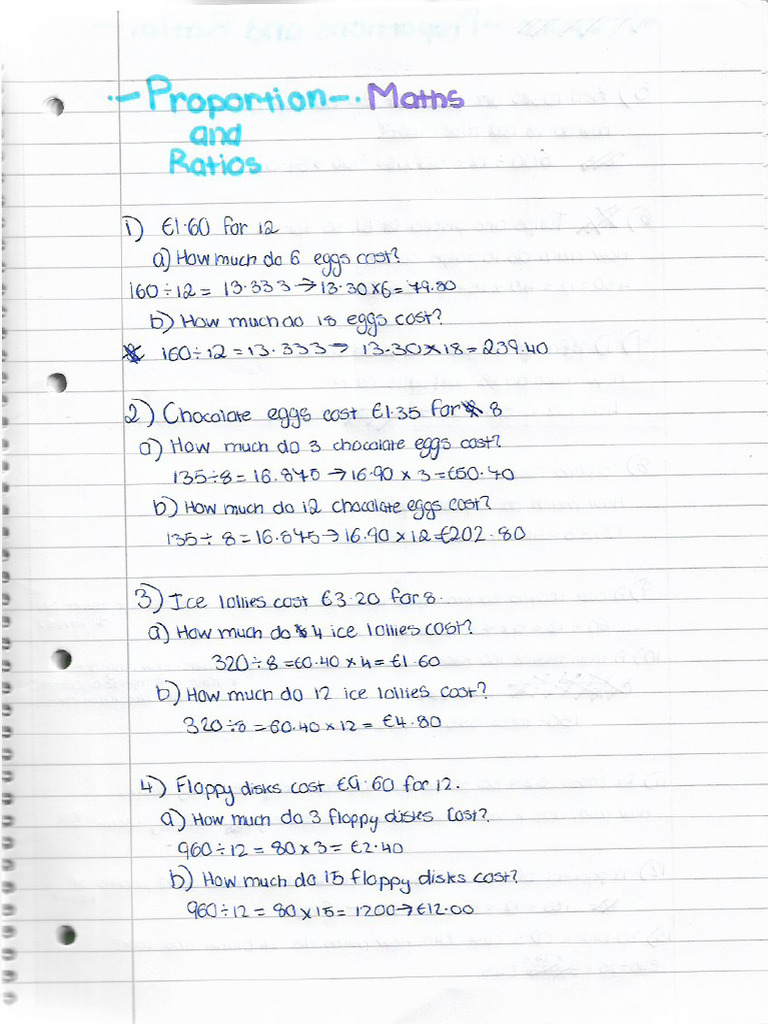 ·-Proportion-. Maths
and
Ratios
1) €1.60 for 12
a) How much do 6 eggs cost?
160÷12 = 13.333 → 13.30×6 = 79.80
b) How much do 18 eggs cost?
160÷12 = 13.333 → 13.30×18 = 239.40
2) Chocolate eggs cost €1.35 for 8
a) How much do 3 chocolate eggs cost?
135÷8 = 16.875 → 16.90 × 3 = €50.70
b) How much do 12 chocolate eggs cost?
135÷8 = 16.875 → 16.90 × 12 = €202.80
3) Ice lollies cost €3.20 for 8.
a) How much do 4 ice lollies cost?
320÷8 = €0.40 × 4 = €1.60
b) How much do 12 ice lollies cost?
320÷8 = €0.40 × 12 = €4.80
4) Floppy disks cost €9.60 for 12.
a) How much do 3 floppy disks cost?
960÷12 = 80×3 = €2.40
b) How much do 15 floppy disks cost?
960÷12 = 80×15 = 1200 → €12.00